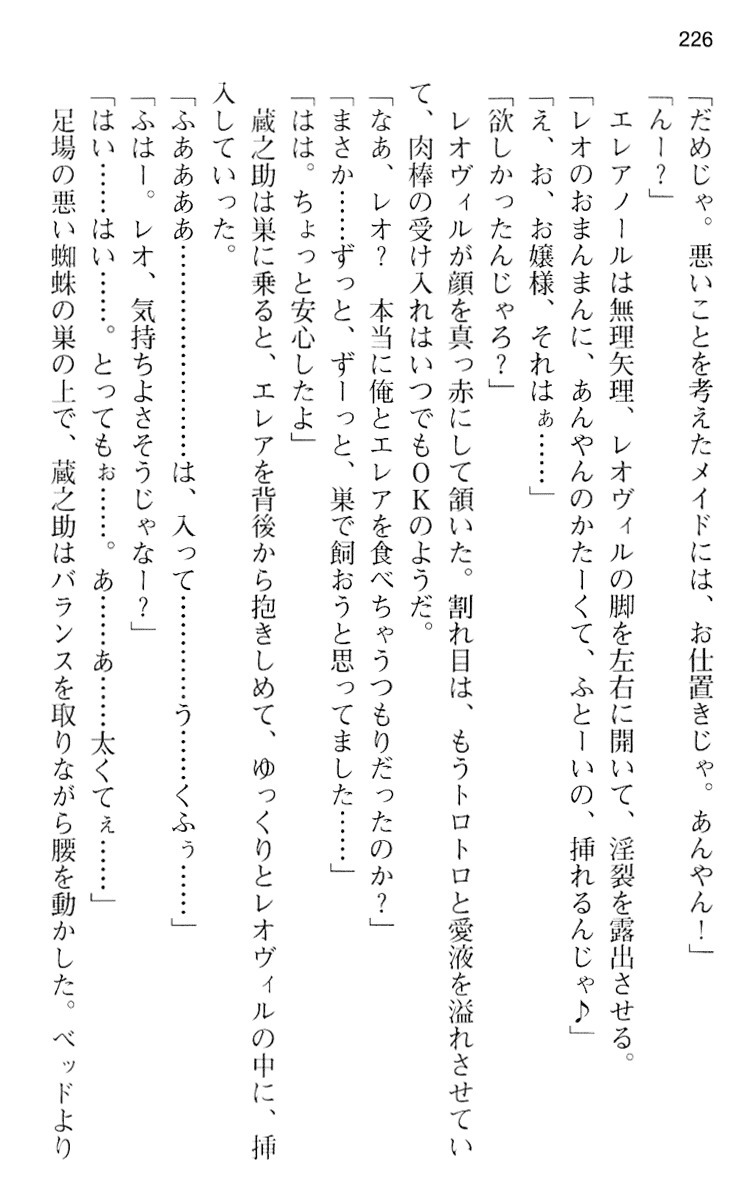 226
「だめじゃ。悪いことを考えたメイドには、お仕置きじゃ。あんやん！」
「んー？」
エレアノールは無理矢理、レオヴィルの脚を左右に開いて、淫裂を露出させる。
「レオのおまんまんに、あんやんのかたーくて、ふとーいの、挿れるんじゃ♪」
「え、お、お嬢様、それはぁ……」
「欲しかったんじゃろ？」
レオヴィルが顔を真っ赤にして頷いた。割れ目は、もうトロトロと愛液を溢れさせてい
て、肉棒の受け入れはいつでもＯＫのようだ。
「なぁ、レオ？　本当に俺とエレアを食べちゃうつもりだったのか？」
「まさか……ずっと、ずーっと、巣で飼おうと思ってました……」
「はは。ちょっと安心したよ」
蔵之助は巣に乗ると、エレアを背後から抱きしめて、ゆっくりとレオヴィルの中に、挿
入していった。
「ふああああ…………………は、入って…………う……くふぅ……」
「ふはー。レオ、気持ちよさそうじゃなー？」
「はい……はい……。とってもぉ……。あ……あ……太くてぇ……」
足場の悪い蜘蛛の巣の上で、蔵之助はバランスを取りながら腰を動かした。ベッドより